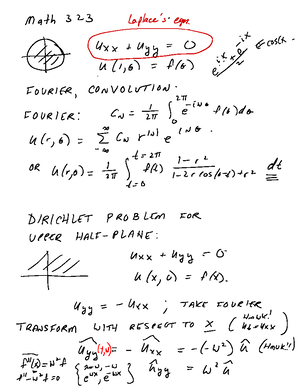 Math 323 Laplace's eqn.
u_xx + u_yy = 0
u(1,θ) = f(θ)
e^{ix} + e^{-ix} / 2 = cos(x
FOURIER, CONVOLUTION.
FOURIER: C_N = 1/2π ∫_0^{2π} e^{-iNθ} f(θ)dθ
u(r,θ) = Σ_{-∞}^{∞} C_N r^{|N|} e^{iNθ}.
OR u(r,θ) = 1/2π ∫_{t=0}^{t=2π} f(t) (1-r²)/(1-2r cos(θ-t)+r²) dt
DIRICHLET PROBLEM FOR
UPPER HALF-PLANE:
u_xx + u_yy = 0
u(x,0) = f(x).
u_yy = -u_xx ; TAKE FOURIER
TRANSFORM WITH RESPECT TO x (HAWK! u_t=u_xx)
û_yy = -û_xx = -(-w²)û (HAWK!)
f''(x) = w²f
f''-w²f=0
û_yy = w²û